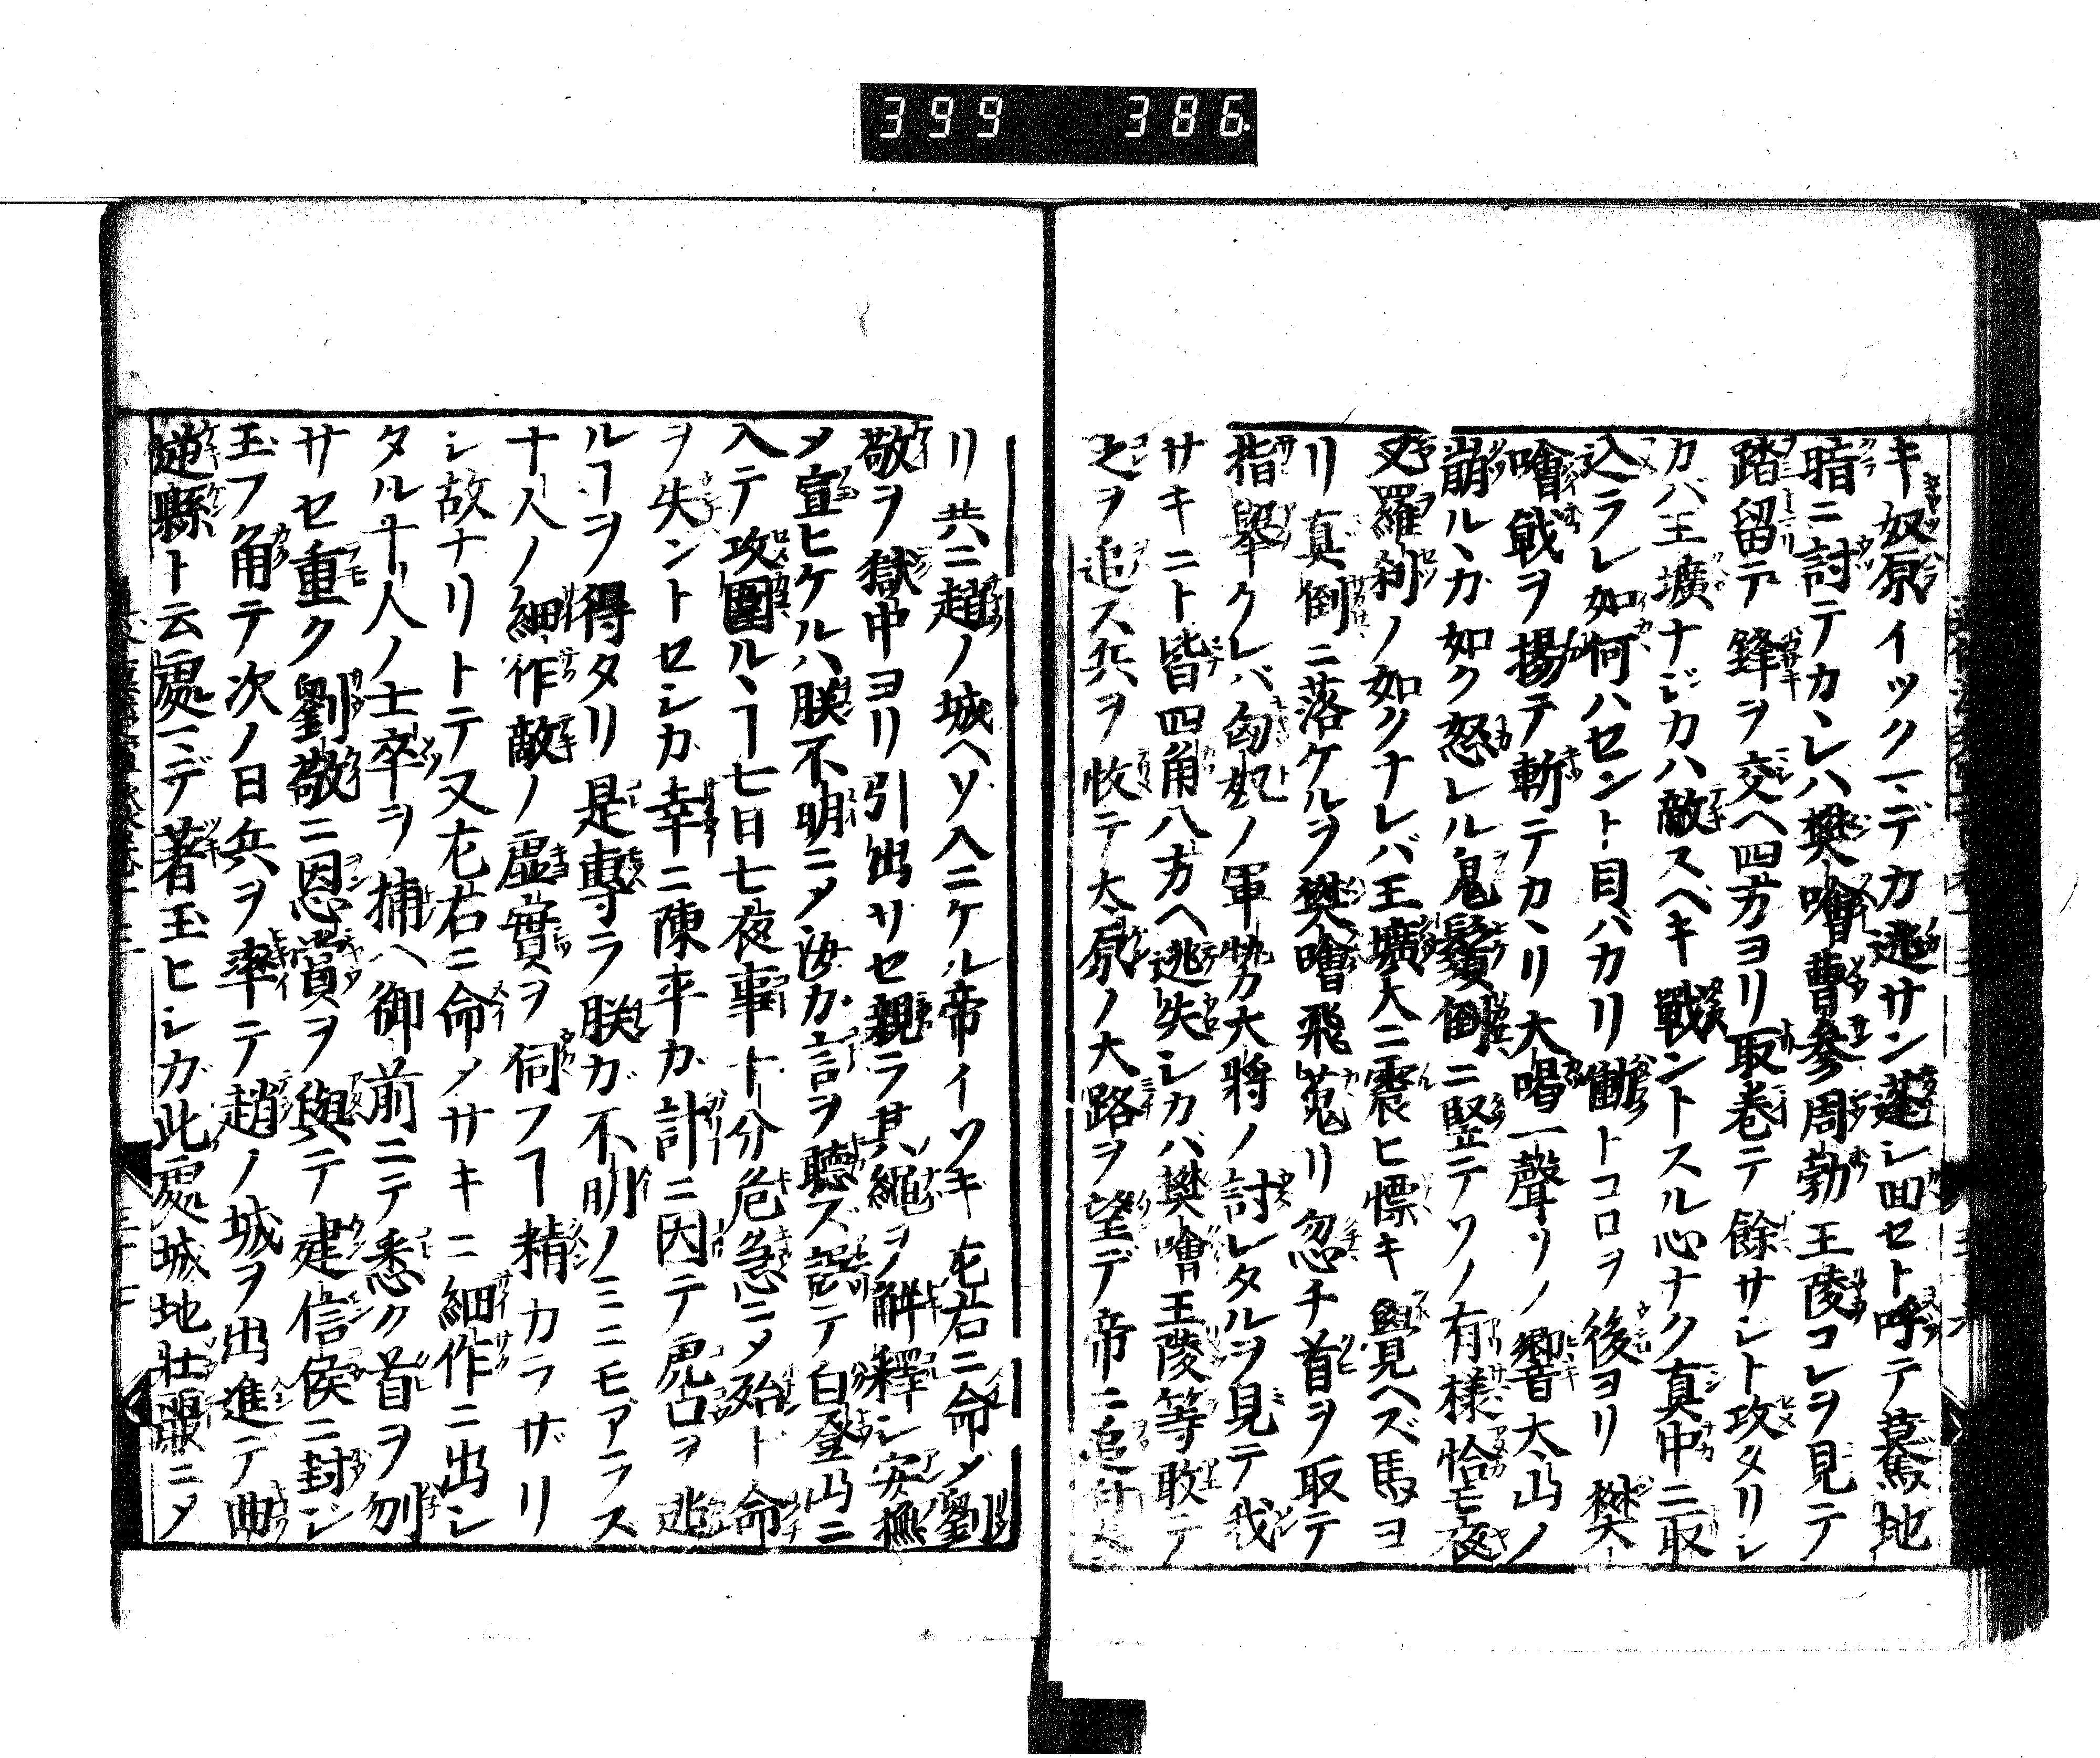 399 386
キ奴原イックマデカ逃サン蓬シ回セト呼テ驀地
暗ニ討テカヽレハ樊噲曹參周勃王陵コレヲ見テ
踏留テ鋒ヲ交ヘ四方ヨリ取巻テ餘サント攻タリシ
カバ王壙ナジカハ敵スベキ戰ントスル心ナク真中ニ取
込ラレ如何ハセント目バカリ動トコロヲ後ヨリ樊
噲戟ヲ揚テ斬テカヽリ大喝一聲ソノ響大山ノ
崩ルヽカ如ク怒レル鬼鬚倒ニ竪テソノ有樣恰モ夜
叉羅刹ノ如クナレバ王壙大ニ震ヒ慄キ覺ヘズ馬ヨ
リ真倒ニ落ケルヲ樊噲飛蒐リ忽チ首ヲ取テ
指舉クレバ匈奴ノ軍勢大將ノ討レタルヲ見テ我
サキニト皆四角八方ヘ逃失シカバ樊噲王陵等敢テ
之ヲ追ス兵ヲ收テ大原ノ大路ヲ望デ帝ニ追
リ共ニ趙ノ城ヘソ入ニケル帝イソキ左右ニ命〆劉
敬ヲ獄中ヨリ引出サセ親ラ其繩ヲ解釋シ安撫
〆宣ヒケルハ朕不明ニ〆汝カ言ヲ聽ズ誤テ白登山ニ
入テ攻圍ルヽヿ七日七夜事ト分危急ニ〆殆ド命
ヲ失ントセシカ幸ニ陳平カ計ニ因テ虎口ヲ逃
ルヿヲ得タリ是專ラ朕ガ不明ノミニモアラス
十人ノ細作敵ノ虛實ヲ伺フヿ精カラザリ
シ故ナリトテ又左右ニ命〆サキニ細作ニ出シ
タル十人ノ士卒ヲ捕ヘ御前ニテ悉ク首ヲ刎
サセ重ク劉敬ニ恩賞ヲ與テ建信侯ニ封ジ
玉フ角テ次ノ日兵ヲ率テ趙ノ城ヲ出進テ曲
逆縣ト云處マデ著玉ヒシガ此處城地壯嚴ニ〆